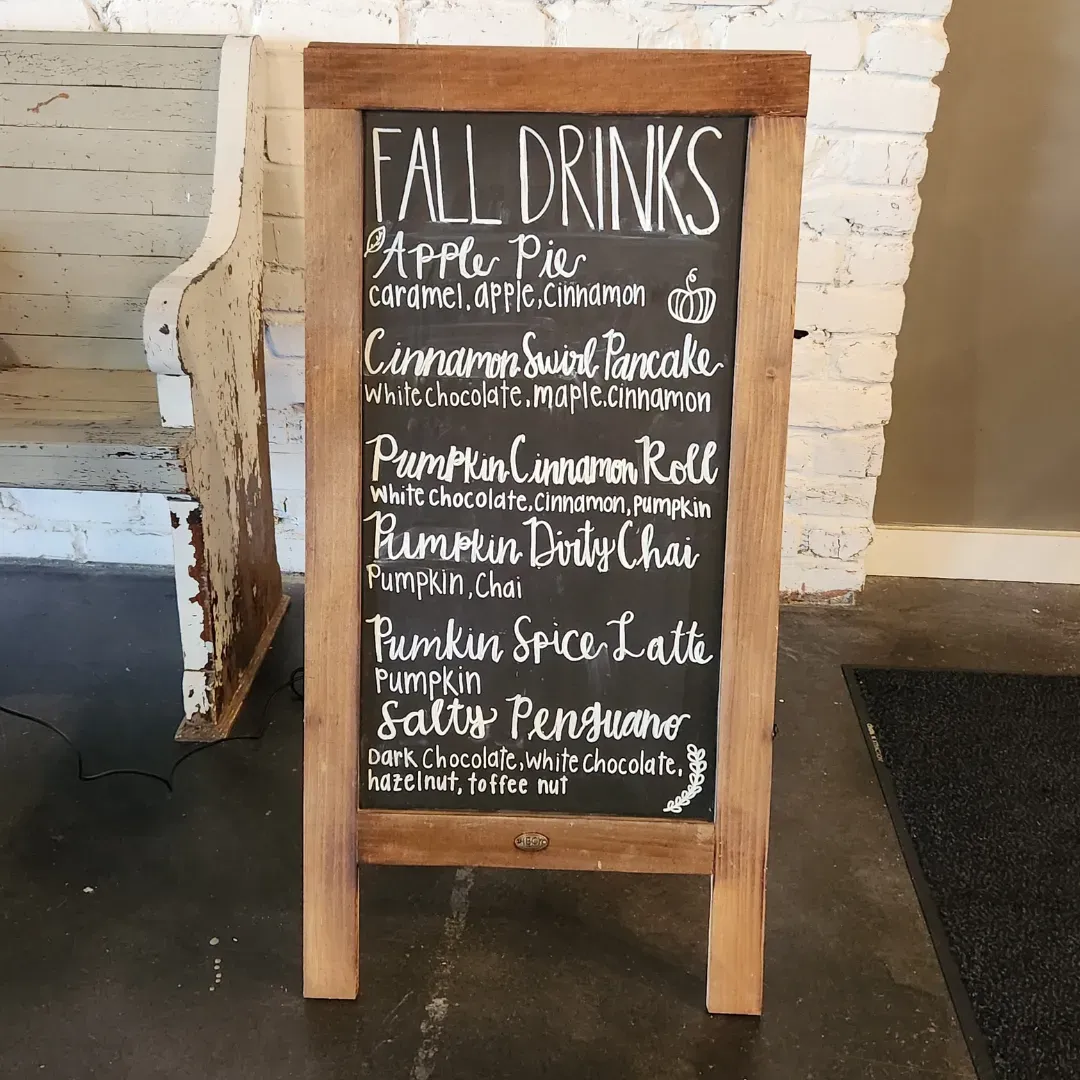 FALL DRINKS
Apple Pie
caramel, apple, cinnamon
Cinnamon Swirl Pancake
White Chocolate, maple, cinnamon
Pumpkin Cinnamon Roll
White Chocolate, Cinnamon, Pumpkin
Pumpkin Dirty Chai
Pumpkin, Chai
Pumkin Spice Latte
Pumpkin
Salty Penguano
Dark Chocolate, White Chocolate,
hazelnut, toffee nut